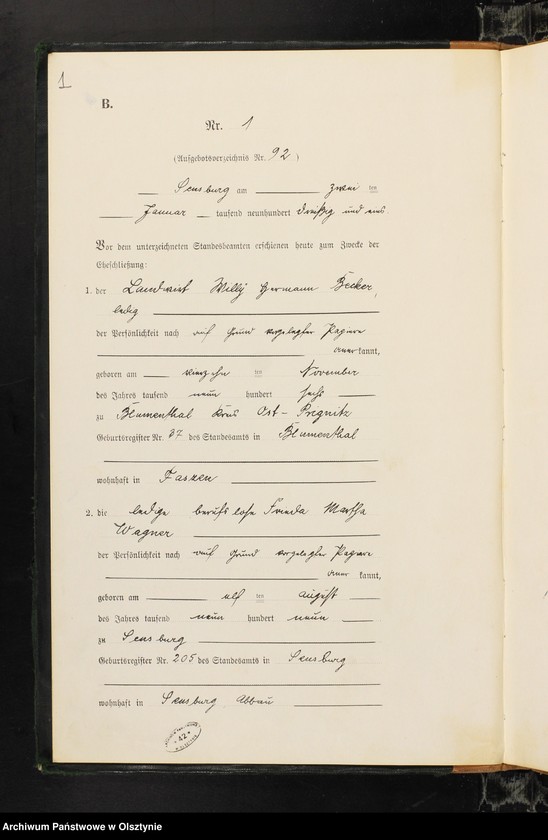 1
B.
Nr. 1
(Aufgebotsverzeichnis Nr. 92)
Sensburg am zwei ten
Januar tausend neunhundert dreißig und eins.
Vor dem unterzeichneten Standesbeamten erschienen heute zum Zwecke der
Eheschließung:
1. der Landwirt Willy Hermann Becker,
ledig
der Persönlichkeit nach auf Grund vorgelegter Papiere
anerkannt,
geboren am vierzehn ten November
des Jahres tausend neun hundert sechs
zu Blumenthal Kreis Ost-Pregnitz
Geburtsregister Nr. 37 des Standesamts in Blumenthal
wohnhaft in Faszen
2. die ledige berufslose Frieda Martha
Wagner
der Persönlichkeit nach auf Grund vorgelegter Papiere
aner kannt,
geboren am elf ten August
des Jahres tausend neun hundert neun
zu Sensburg
Geburtsregister Nr. 205 des Standesamts in Sensburg
wohnhaft in Sensburg Abbau
42
Archiwum Państwowe w Olsztynie